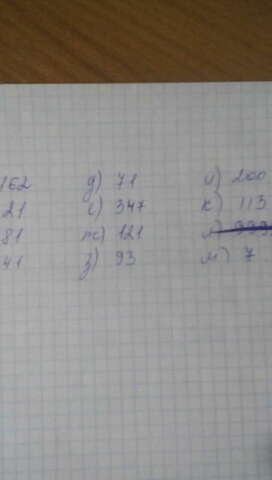 162 д) 71 и) 200
21 е) 347 к) 113
81 ж) 121 л) 999
41 з) 93 м) 7